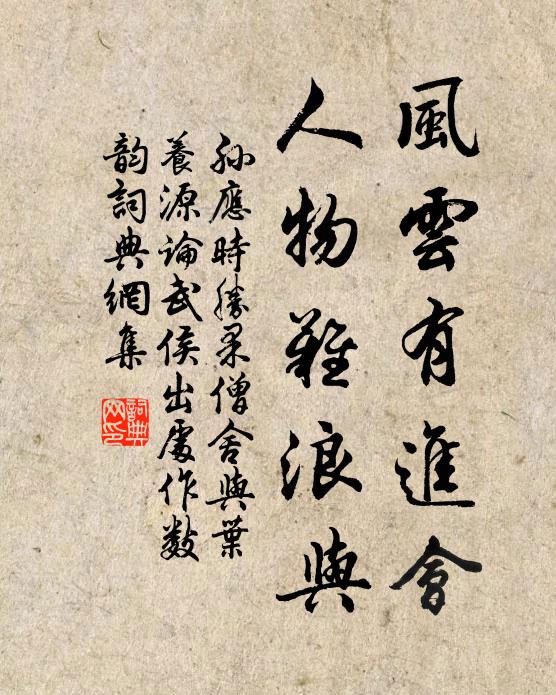 風雲有進會
人物難浪與
孙應時勝果僧舍與葉
養源論武侯出處作數
韵詞典網集
詞典网印